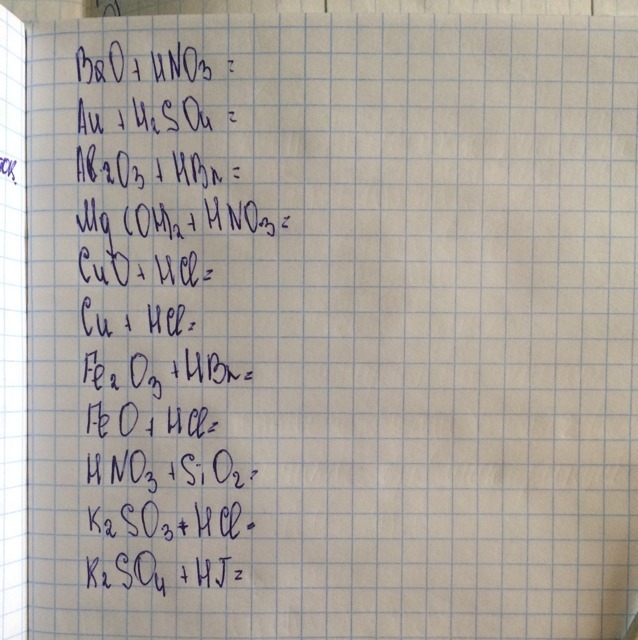 BaO + HNO3 =
Au + H2SO4 =
Al2O3 + HBr =
Mg(OH)2 + HNO3 =
CuO + HCl =
Cu + HCl =
Fe2O3 + HBr =
FeO + HCl =
HNO3 + SiO2 =
K2SO3 + HCl =
K2SO4 + HJ =